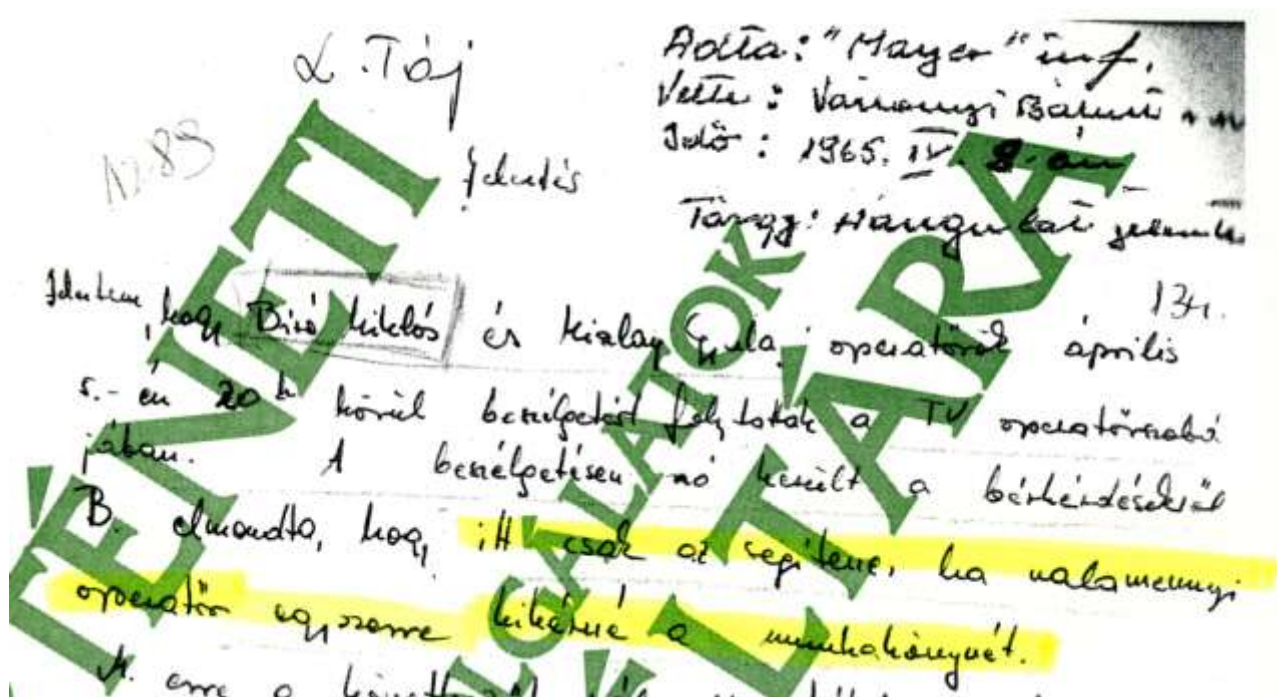 L. Táj
Adta: "Mayer" inf.
Vette: Bálint
Idő: 1965. IV. 9-én
Jelentés
Tárgy: Hangulat jelentés
134.
Jelentem, hogy Biró Miklós és Kislay Gyula operatőrök április
5.-én 20h körül beszélgetést folytattak a TV operatőrszobá
jában. A beszélgetésen szó került a bérkérdésekről
B. elmondta, hogy itt csak az segítene, ha valamennyi
operatőr egyszerre kikérné a munkakönyvét.
M. erre a
TÉNETI
GÁLATOK
LTÁRA